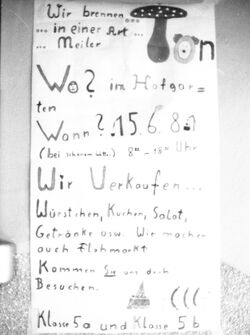 Wir brennen ...
... in einer Art ...
... Meiler
Ton
Wo? im Hofgar=
ten
Wann? 15.6.81
(bei schönem Wett..) 8°° - 18°° Uhr
Wir Verkaufen ...
Würstchen, Kuchen, Salat,
Getränke usw. Wir machen
auch Flohmarkt
Kommen Sie uns doch
Besuchen.
Klasse 5a und Klasse 5b